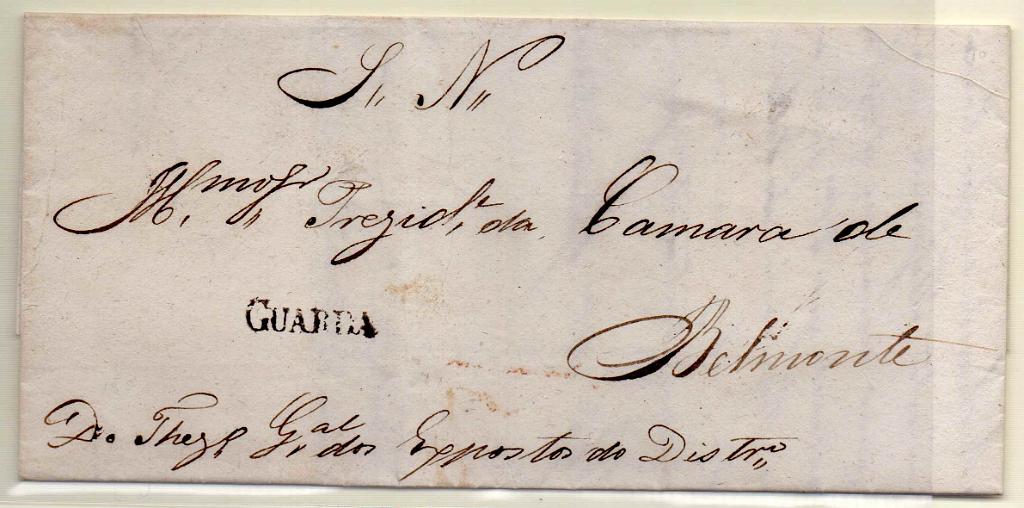 S. N.
Illmo Sr Prezide. da Camara de
GUARDA
Belmonte
Do Thezro Gal dos Expostos do Distro